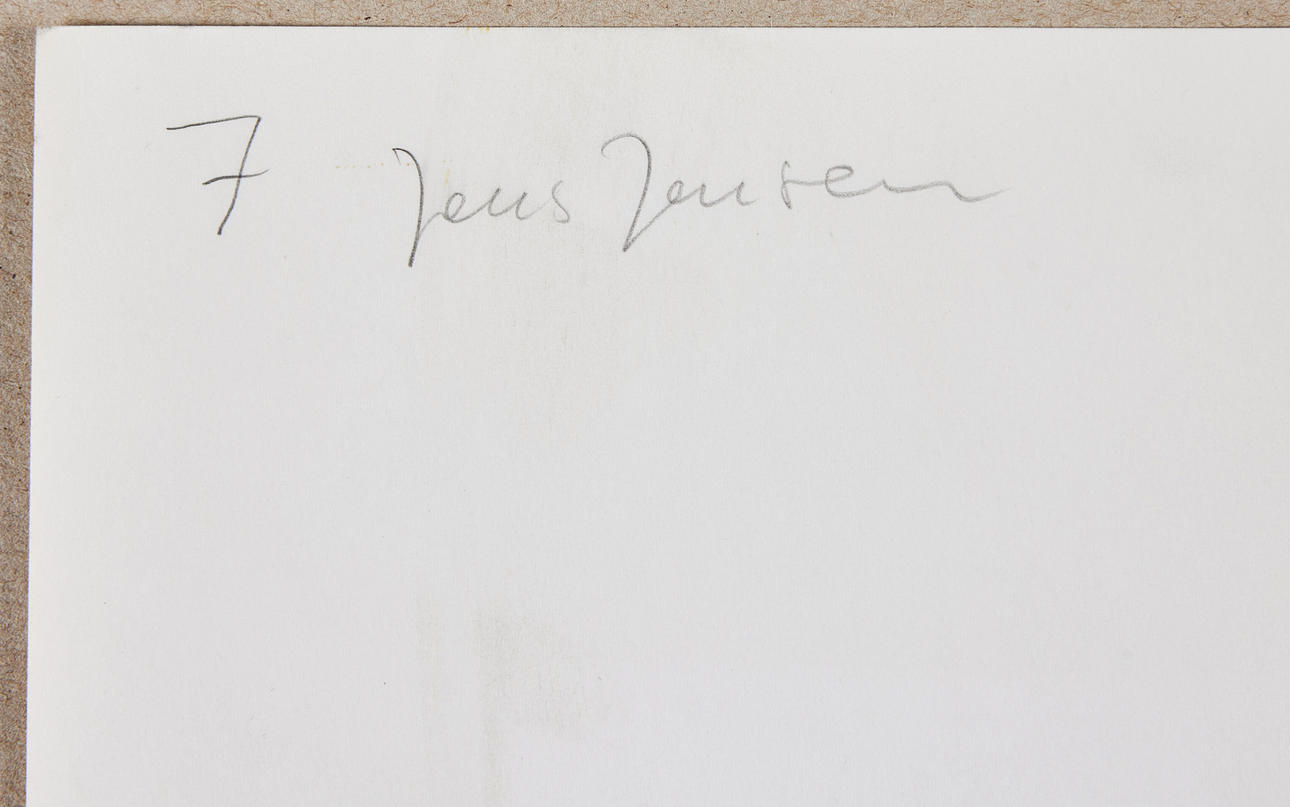 7 Jens Jensen